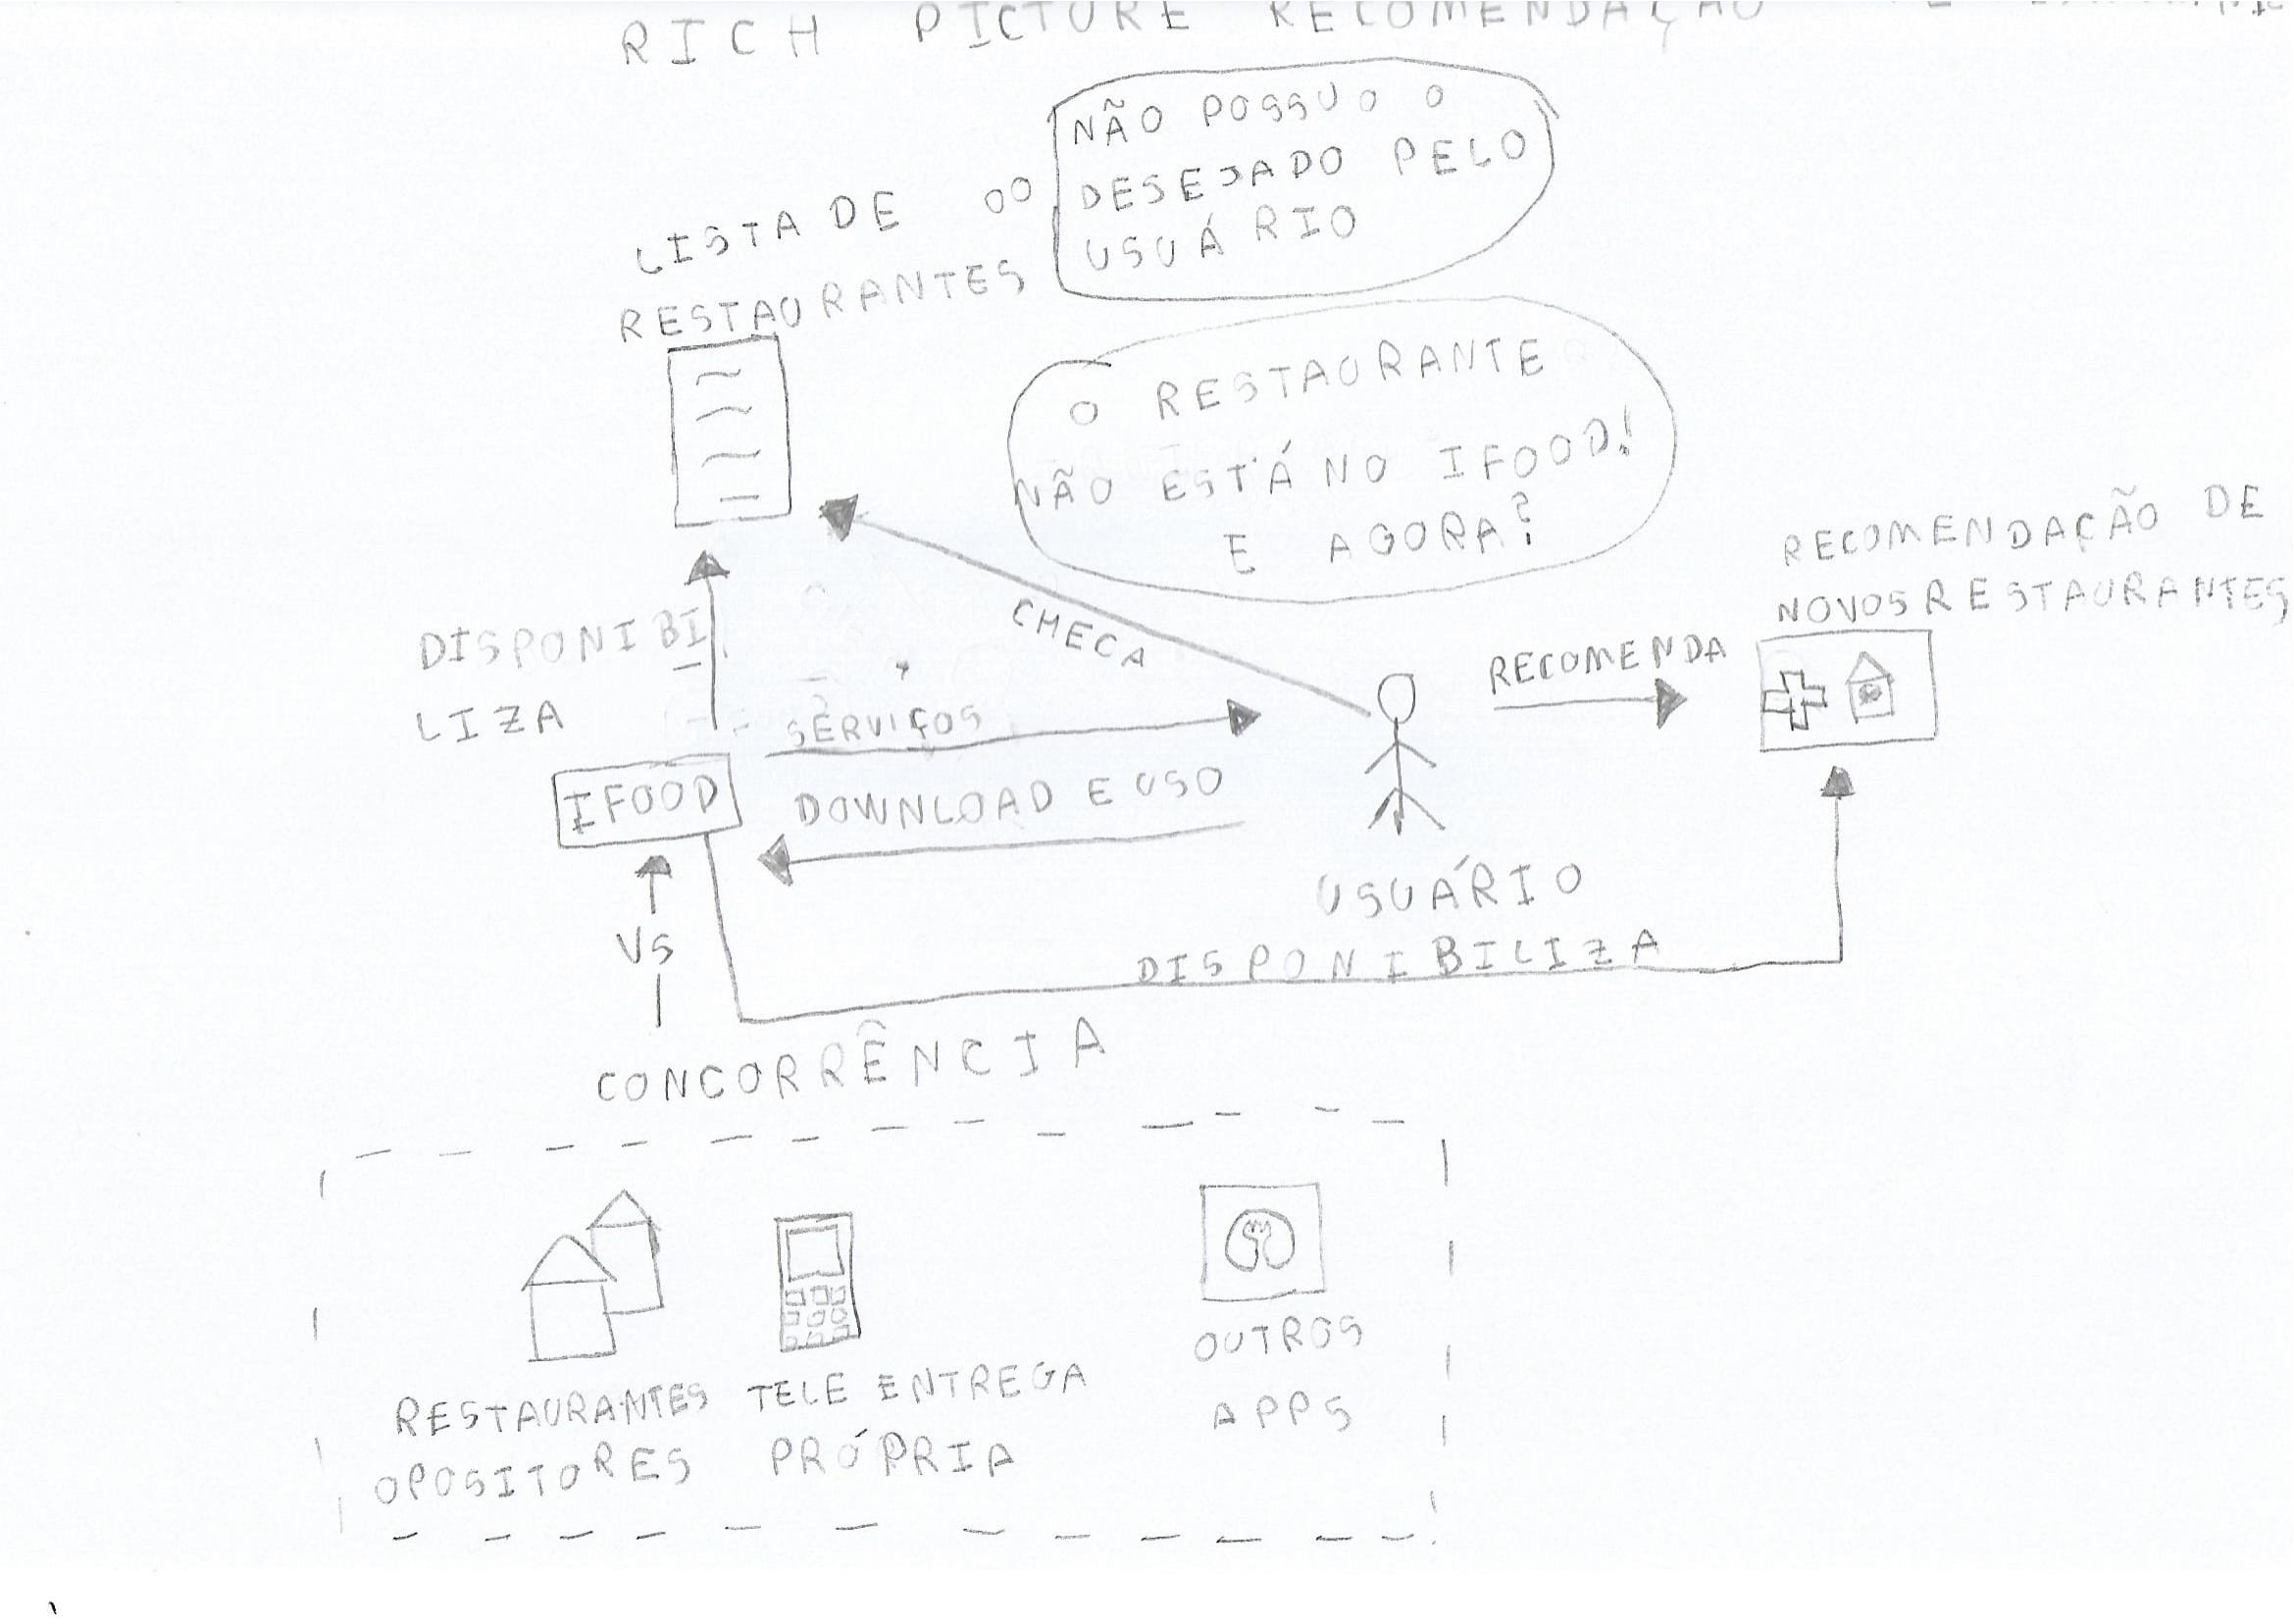 RICH PICTURE RECOMENDAÇÃO
NÃO POSSUO O
DESEJADO PELO
USUÁRIO
LISTA DE
RESTAURANTES
O RESTAURANTE
NÃO ESTÁ NO IFOOD!
E AGORA?
RECOMENDAÇÃO DE
NOVOS RESTAURANTES
CHECA
DISPONIBI
LIZA
RECOMENDA
SERVIÇOS
IFOOD
DOWNLOAD E USO
USUÁRIO
VS
DISPONIBILIZA
CONCORRÊNCIA
RESTAURANTES
OPOSITORES
TELE ENTREGA
PRÓPRIA
OUTROS
APPS